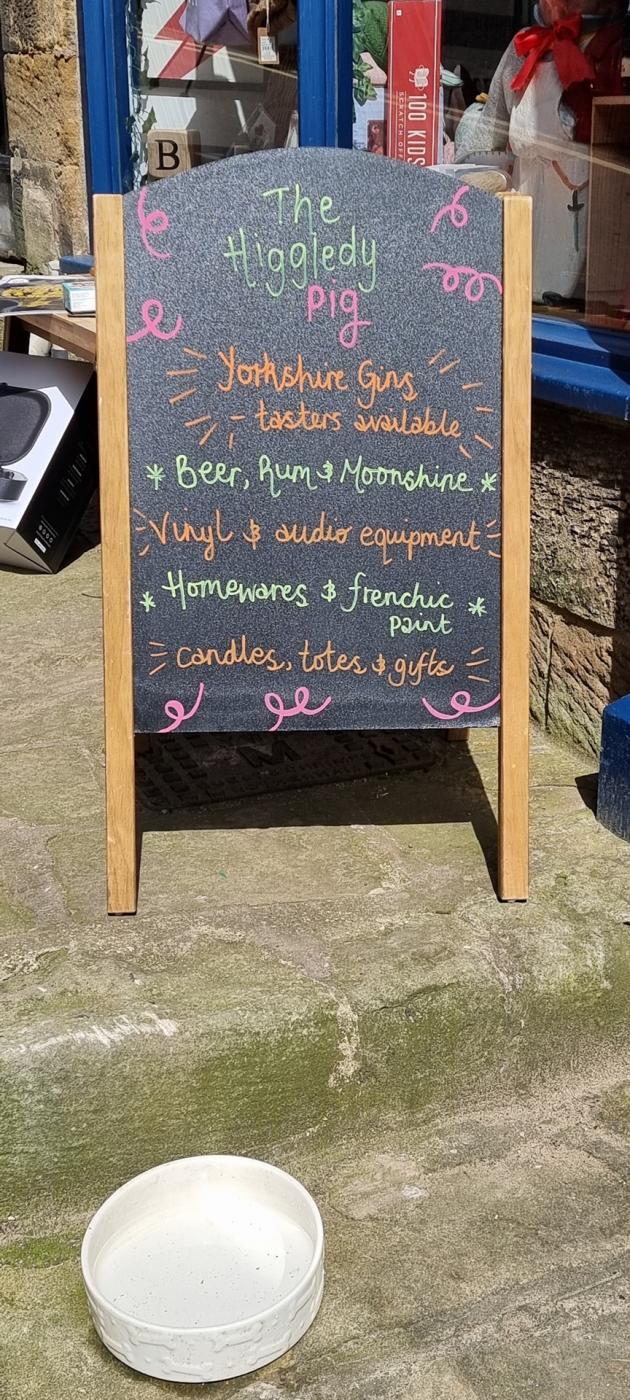 B
100 KIDS
SCRATCH OFF
The
Higgledy
Pig
Yorkshire Gins
- tasters available
* Beer, Rum & Moonshine *
Vinyl & audio equipment
* Homewares & frenchic *
paint
candles, totes & gifts
M